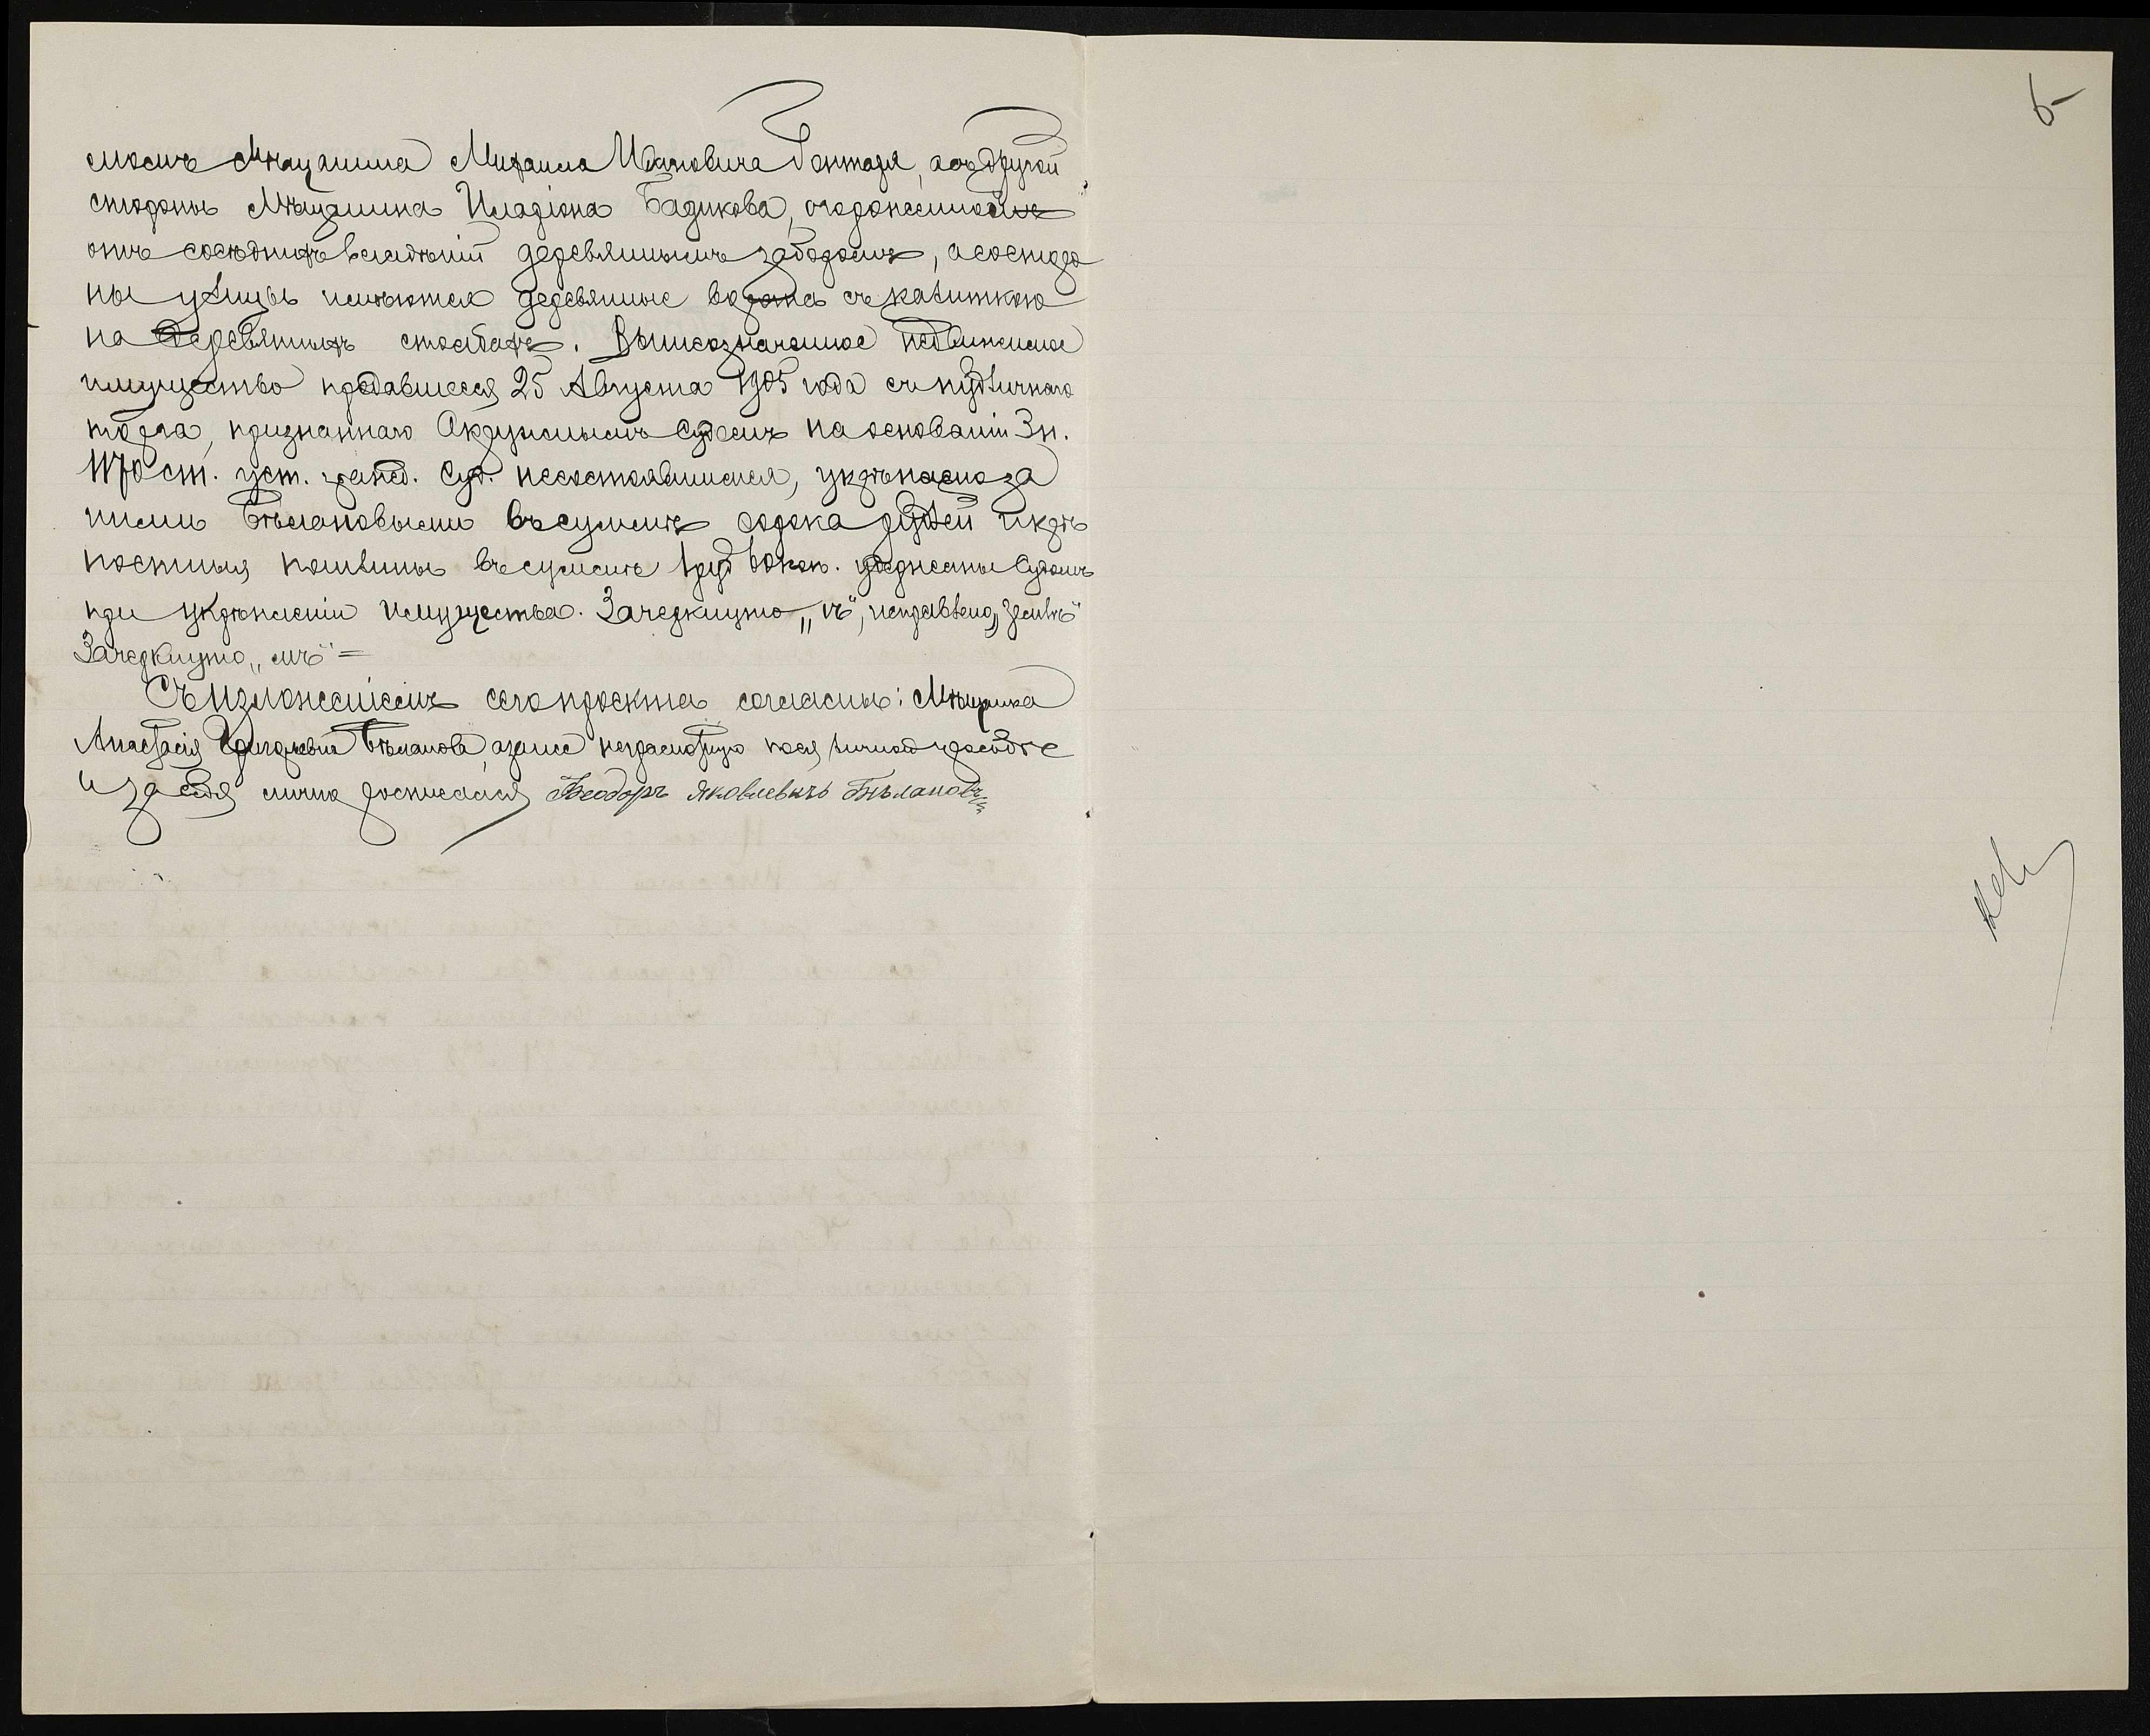 момъ Мѣщанина Михаила Ивановича Гонтаря, а съ другой
стороны Мѣщанина Иларіона Бадикова, огороженное
отъ сосѣднихъ владѣній деревяннымъ заборомъ, а со сторо
ны улицы имѣются деревянные ворота съ калиткою
на деревянныхъ столбахъ. Вышеозначенное недвижимое
имущество продавшееся 25 Августа 1905 года съ публичнаго
торга, признаннаго Окружнымъ Судомъ на основаніи 3 п.
1170 ст. уст. гражд. Суд. несостоявшимся, укрѣплено за
ними Бѣлановыми въ суммѣ сорока рублей и крѣ
постныя пошлины въ суммѣ 1 руб 60 коп. удержаны Судомъ
при укрѣпленіи имущества. Зачеркнуто „въ", исправлено „землѣ"
Зачеркнуто „мъ" =
Съ изложеніемъ сего проекта согласны: Мѣщанка
Анастасія Григорьевна Бѣланова, а за нее неграмотную по ея личной просьбѣ
и за себя лично росписался Ѳеодоръ Яковлевичъ Бѣлановъ
5